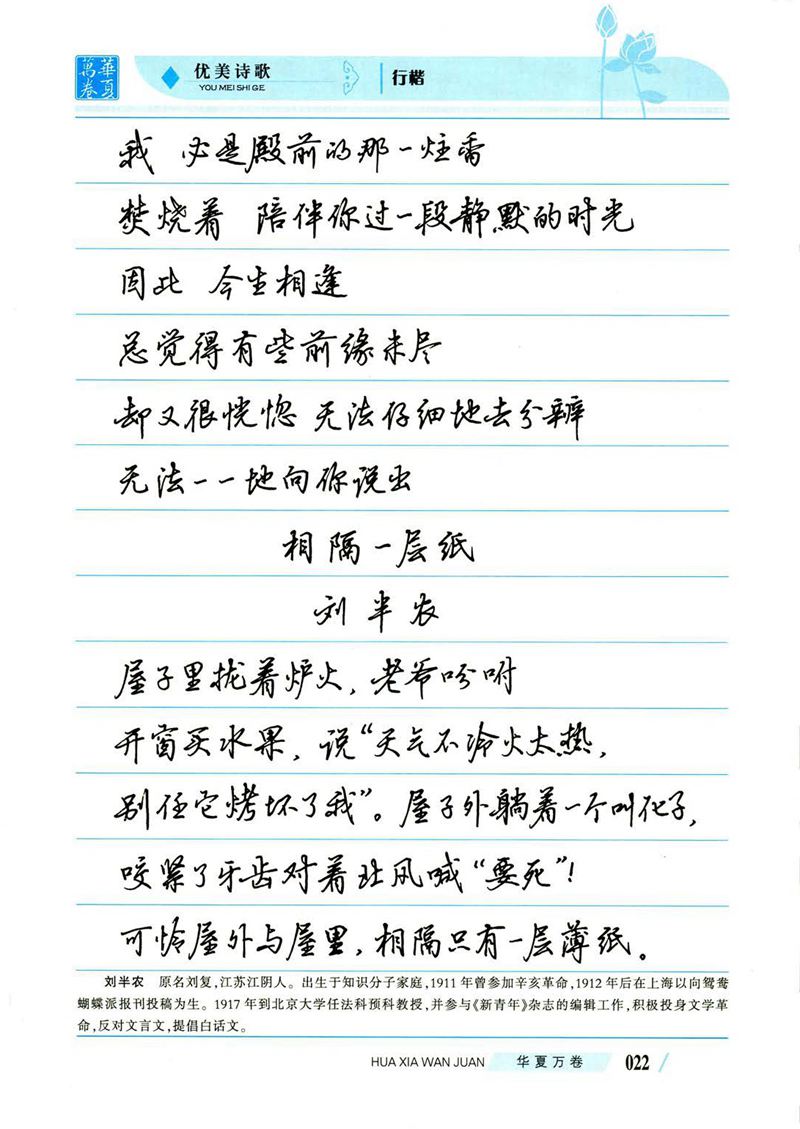 華夏萬卷
优美诗歌
YOU MEI SHI GE
行楷
我 必是殿前的那一炷香
焚烧着 陪伴你过一段静默的时光
因此 今生相逢
总觉得有些前缘未尽
却又很恍惚 无法仔细地去分辨
无法一一地向你说出
相隔一层纸
刘半农
屋子里拢着炉火，老爷吩咐
开窗买水果，说“天气不冷火太热，
别任它烤坏了我”。屋子外躺着一个叫化子，
咬紧了牙齿对着北风喊“要死”！
可怜屋外与屋里，相隔只有一层薄纸。
刘半农 原名刘复，江苏江阴人。出生于知识分子家庭，1911 年曾参加辛亥革命，1912 年后在上海以向鸳鸯
蝴蝶派报刊投稿为生。1917 年到北京大学任法科预科教授，并参与《新青年》杂志的编辑工作，积极投身文学革
命，反对文言文，提倡白话文。
HUA XIA WAN JUAN 华夏万卷 022